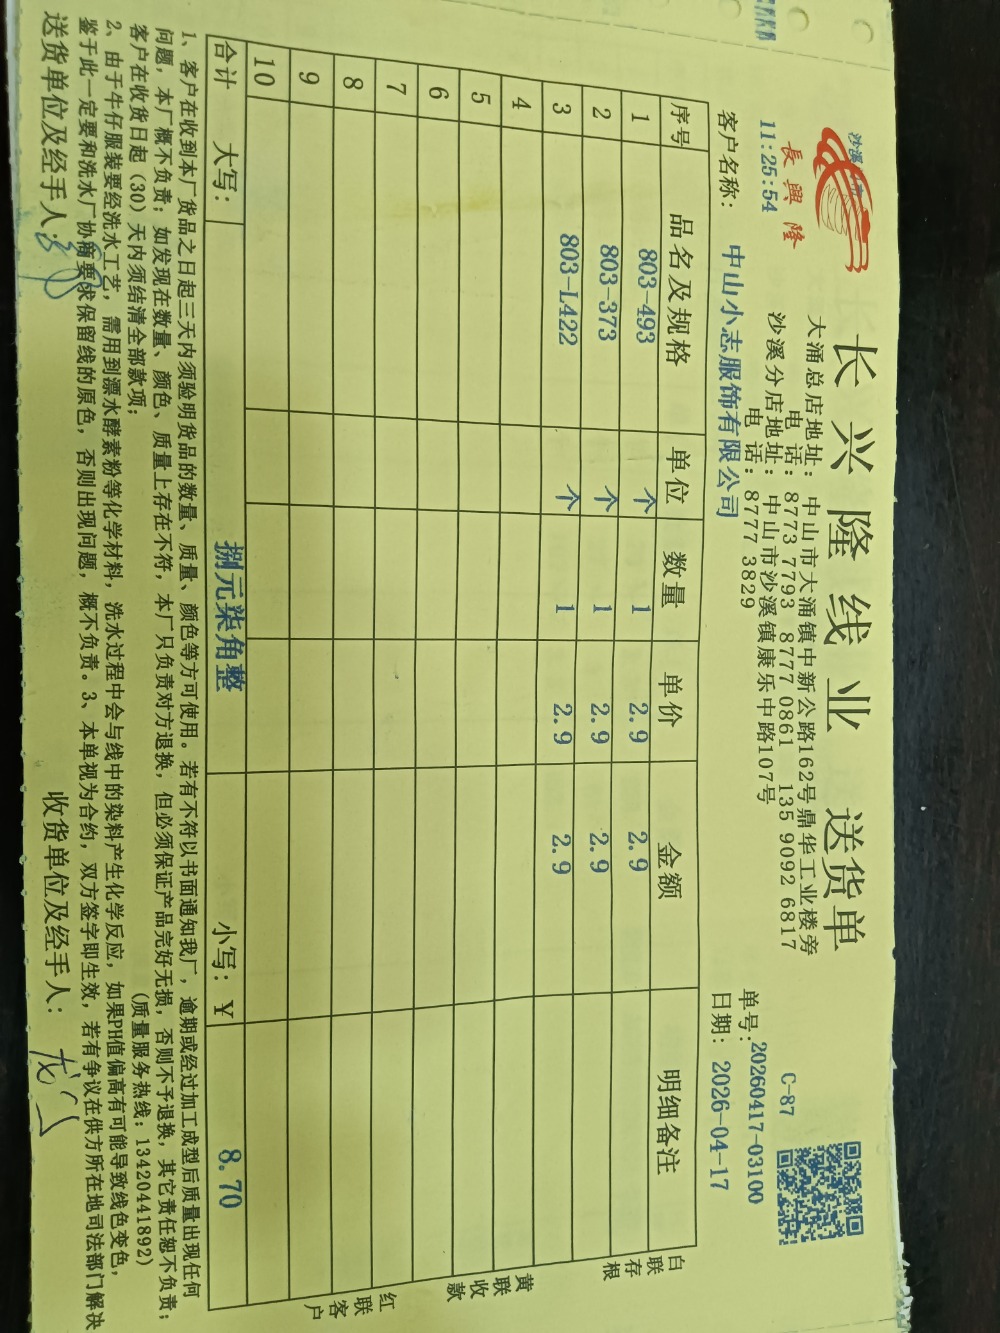 長興隆
长兴隆线业 送货单
大涌总店地址: 中山市大涌镇中新公路162号鼎华工业楼旁
电 话: 8773 7793 8777 0861 135 9092 6817
沙溪分店地址: 中山市沙溪镇康乐中路107号
电 话: 8777 3829
C-87
11:25:54
单号: 20260417-03100
客户名称: 中山小志服饰有限公司
日期: 2026-04-17
序号 品名及规格 单位 数量 单价 金额 明细备注
1 803-493 个 1 2.9 2.9
2 803-373 个 1 2.9 2.9
3 803-L422 个 1 2.9 2.9
4
5
6
7
8
9
10
合计 大写: 捌元柒角整 小写: ¥ 8.70
白联存根
黄联收款
红联客户
1、客户在收到本厂货品之日起三天内须验明货品的数量、质量、颜色等方可使用。若有不符以书面通知我厂,逾期或经过加工成型后质量出现任何
问题,本厂概不负责;如发现在数量、颜色、质量上存在不符,本厂只负责对方退换,但必须保证产品完好无损,否则不予退换,其它责任恕不负责;
客户在收货日起(30)天内须结清全部款项; (质量服务热线:13420441892)
2、由于牛仔服装要经洗水工艺,需用到漂水酵素粉等化学材料,洗水过程中会与线中的染料产生化学反应,如果PH值偏高有可能导致线色变色,
鉴于此一定要和洗水厂协商要求保留线的原色,否则出现问题,概不负责。3、本单视为合约,双方签字即生效,若有争议在供方所在地司法部门解决
送货单位及经手人: 收货单位及经手人: